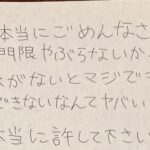 本当にごめんなさ
門限やぶらないか
がないとマジで
できないなんてヤバい
本当に許して下さい